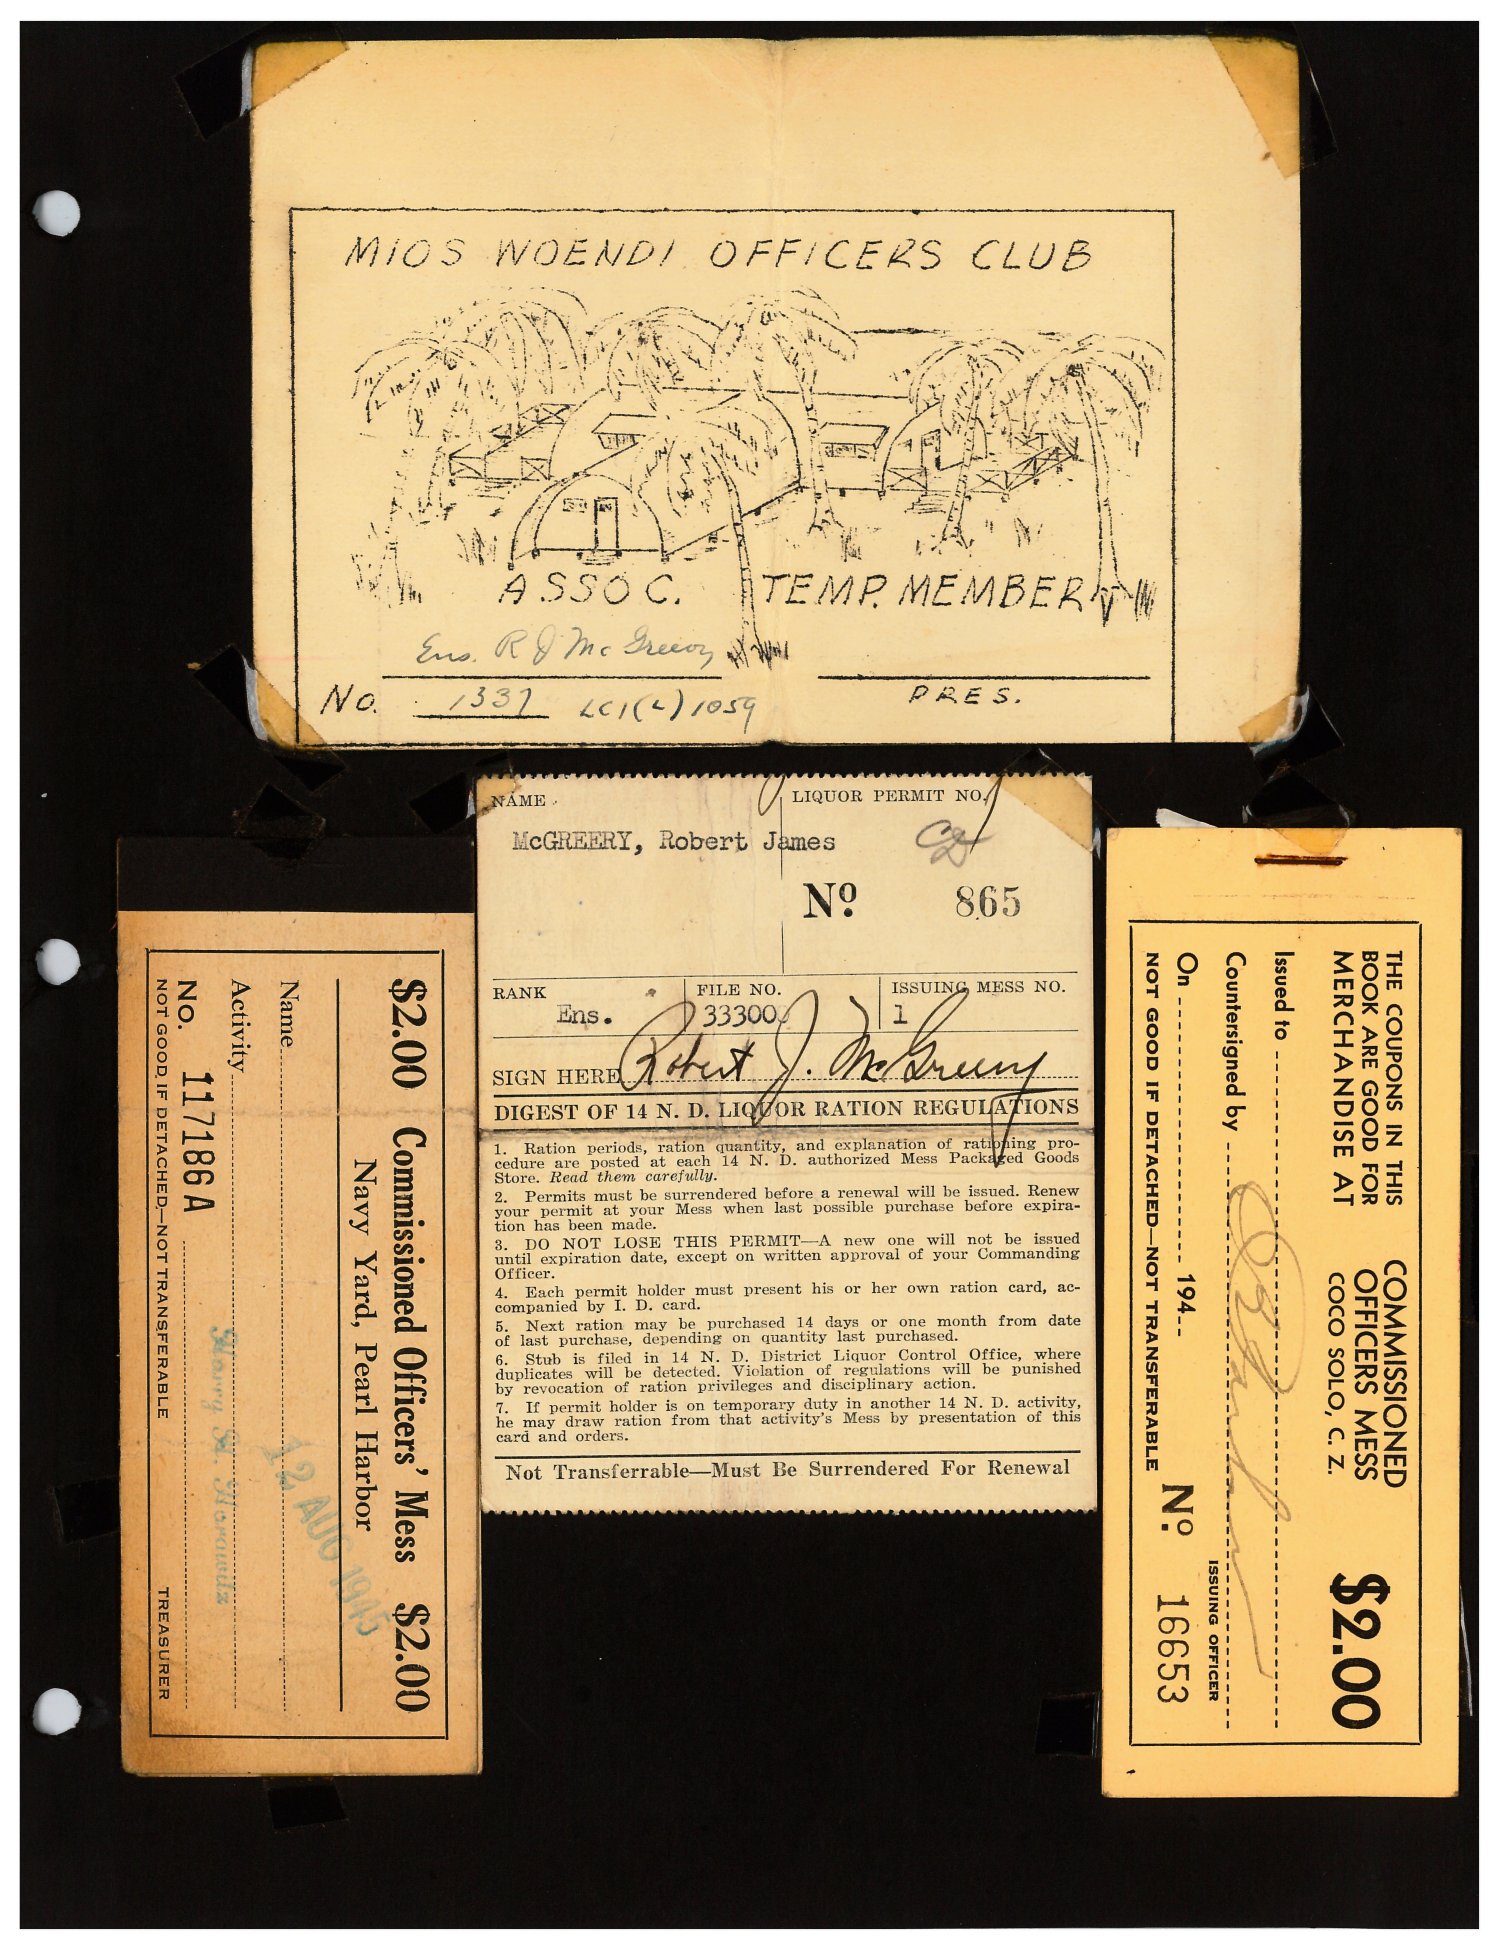 MIOS WOENDI OFFICERS CLUB
ASSOC. TEMP. MEMBER
Ens. R J McGreevy
PRES.
No. 1337 LCI(L) 1059
NAME
McGREERY, Robert James
LIQUOR PERMIT NO.
No. 865
RANK
Ens.
FILE NO.
333000
ISSUING MESS NO.
1
SIGN HERE Robert J. McGreevy
DIGEST OF 14 N. D. LIQUOR RATION REGULATIONS
1. Ration periods, ration quantity, and explanation of rationing pro-
cedure are posted at each 14 N. D. authorized Mess Packaged Goods
Store. Read them carefully.
2. Permits must be surrendered before a renewal will be issued. Renew
your permit at your Mess when last possible purchase before expira-
tion has been made.
3. DO NOT LOSE THIS PERMIT—A new one will not be issued
until expiration date, except on written approval of your Commanding
Officer.
4. Each permit holder must present his or her own ration card, ac-
companied by I. D. card.
5. Next ration may be purchased 14 days or one month from date
of last purchase, depending on quantity last purchased.
6. Stub is filed in 14 N. D. District Liquor Control Office, where
duplicates will be detected. Violation of regulations will be punished
by revocation of ration privileges and disciplinary action.
7. If permit holder is on temporary duty in another 14 N. D. activity,
he may draw ration from that activity's Mess by presentation of this
card and orders.
Not Transferrable—Must Be Surrendered For Renewal
$2.00 Commissioned Officers' Mess $2.00
Navy Yard, Pearl Harbor
12 AUG 1945
Name
Activity
Harry A. Horowitz
No. 117186A
NOT GOOD IF DETACHED—NOT TRANSFERABLE TREASURER
THE COUPONS IN THIS
BOOK ARE GOOD FOR
MERCHANDISE AT
COMMISSIONED
OFFICERS MESS
COCO SOLO, C. Z.
$2.00
Issued to
Countersigned by
ISSUING OFFICER
On 194
NOT GOOD IF DETACHED—NOT TRANSFERABLE
No. 16653